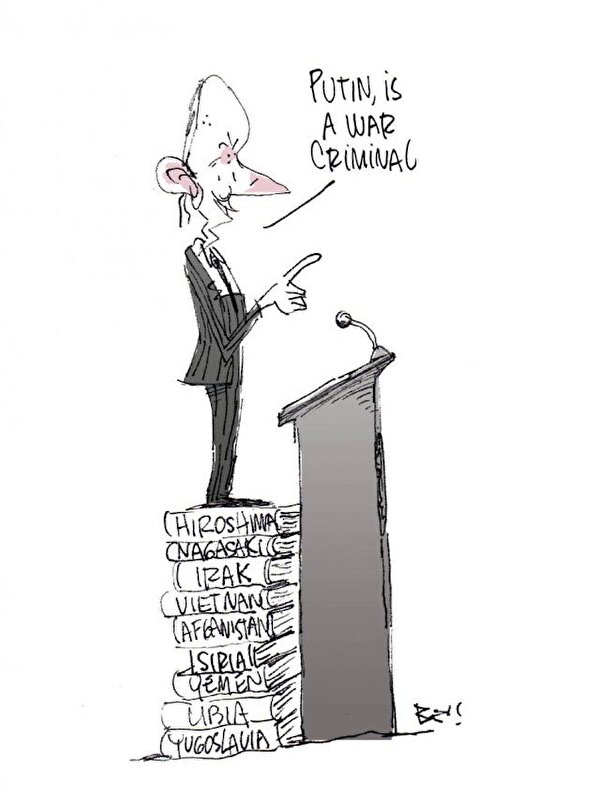 PUTIN, IS
A WAR
CRIMINAL
HIROSHIMA
NAGASAKI
IRAK
VIETNAN
AFGANISTAN
SIRIA
YEMEN
LIBIA
YUGOSLAVIA